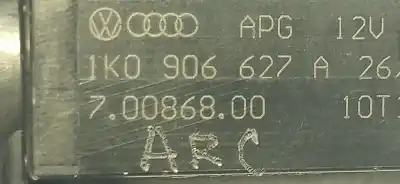 APG 12V
1K0 906 627 A 26
7.00868.00 10T
ARC